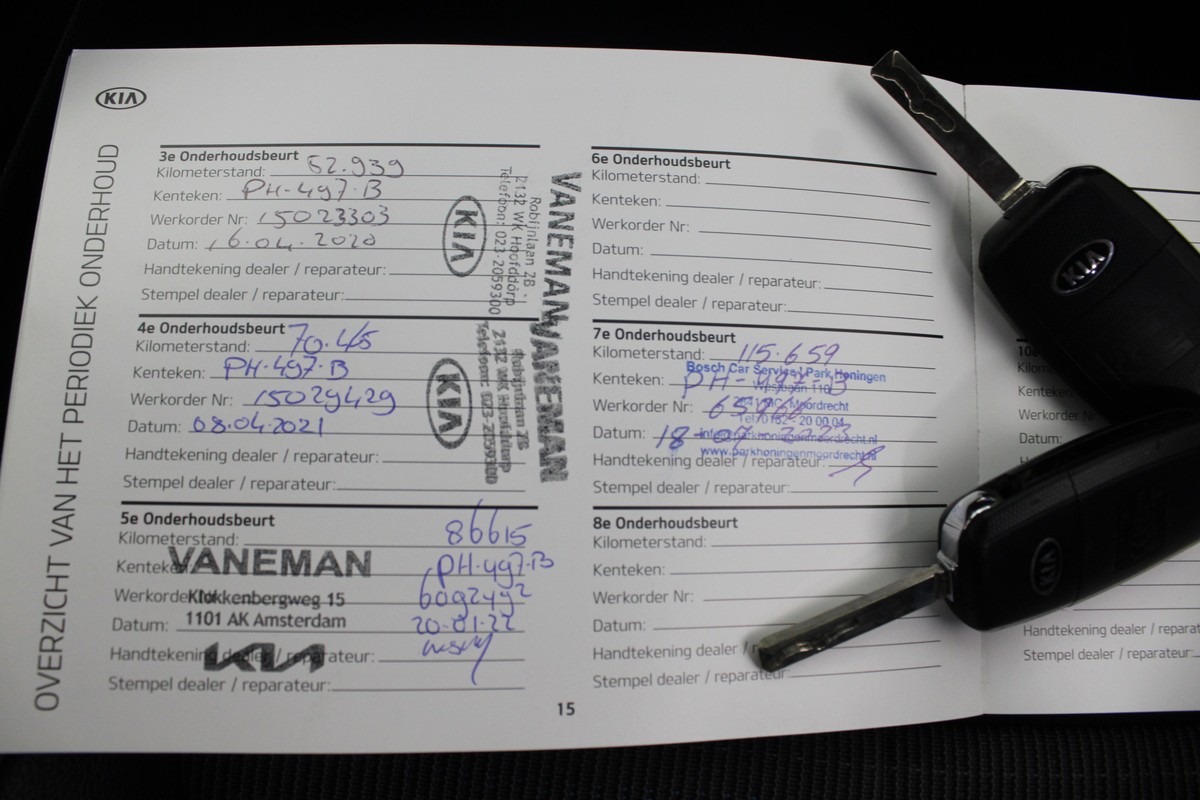 KIA
OVERZICHT VAN HET PERIODIEK ONDERHOUD
3e Onderhoudsbeurt
Kilometerstand: 52.939
Kenteken: PH-497-B
Werkorder Nr: 15023303
Datum: 16.04.2020
Handtekening dealer / reparateur:
Stempel dealer / reparateur:
VANEMAN
Robijnlaan 2B
2132 WK Hoofddorp
Telefoon: 023-2059300
KIA
4e Onderhoudsbeurt
Kilometerstand: 70.415
Kenteken: PH-497-B
Werkorder Nr: 15029429
Datum: 08.04.2021
Handtekening dealer / reparateur:
Stempel dealer / reparateur:
VANEMAN
Robijnlaan 2B
2132 WK Hoofddorp
Telefoon: 023-2059300
KIA
5e Onderhoudsbeurt
Kilometerstand: 86615
Kenteken: PH-497-B
Werkorder 6092492
Datum: 20-01-22
Handtekening dealer / reparateur:
Stempel dealer / reparateur:
VANEMAN
Klokkenbergweg 15
1101 AK Amsterdam
KIA
6e Onderhoudsbeurt
Kilometerstand:
Kenteken:
Werkorder Nr:
Datum:
Handtekening dealer / reparateur:
Stempel dealer / reparateur:
7e Onderhoudsbeurt
Kilometerstand: 115.659
Kenteken: PH-497-B
Werkorder Nr:
Datum: 18-07-2023
Handtekening dealer / reparateur:
Stempel dealer / reparateur:
Bosch Car Service Park Honingen
Moordrecht
Tel 0182 - 20 00 04
info@parkhoningenmoordrecht.nl
www.parkhoningenmoordrecht.nl
8e Onderhoudsbeurt
Kilometerstand:
Kenteken:
Werkorder Nr:
Datum:
Handtekening dealer /
Stempel dealer / reparateur:
15
10e
Kilom
Kenteke
Werkorder N
Datum:
Handtekening dealer / reparat
Stempel dealer / reparateur:
KIA
KIA